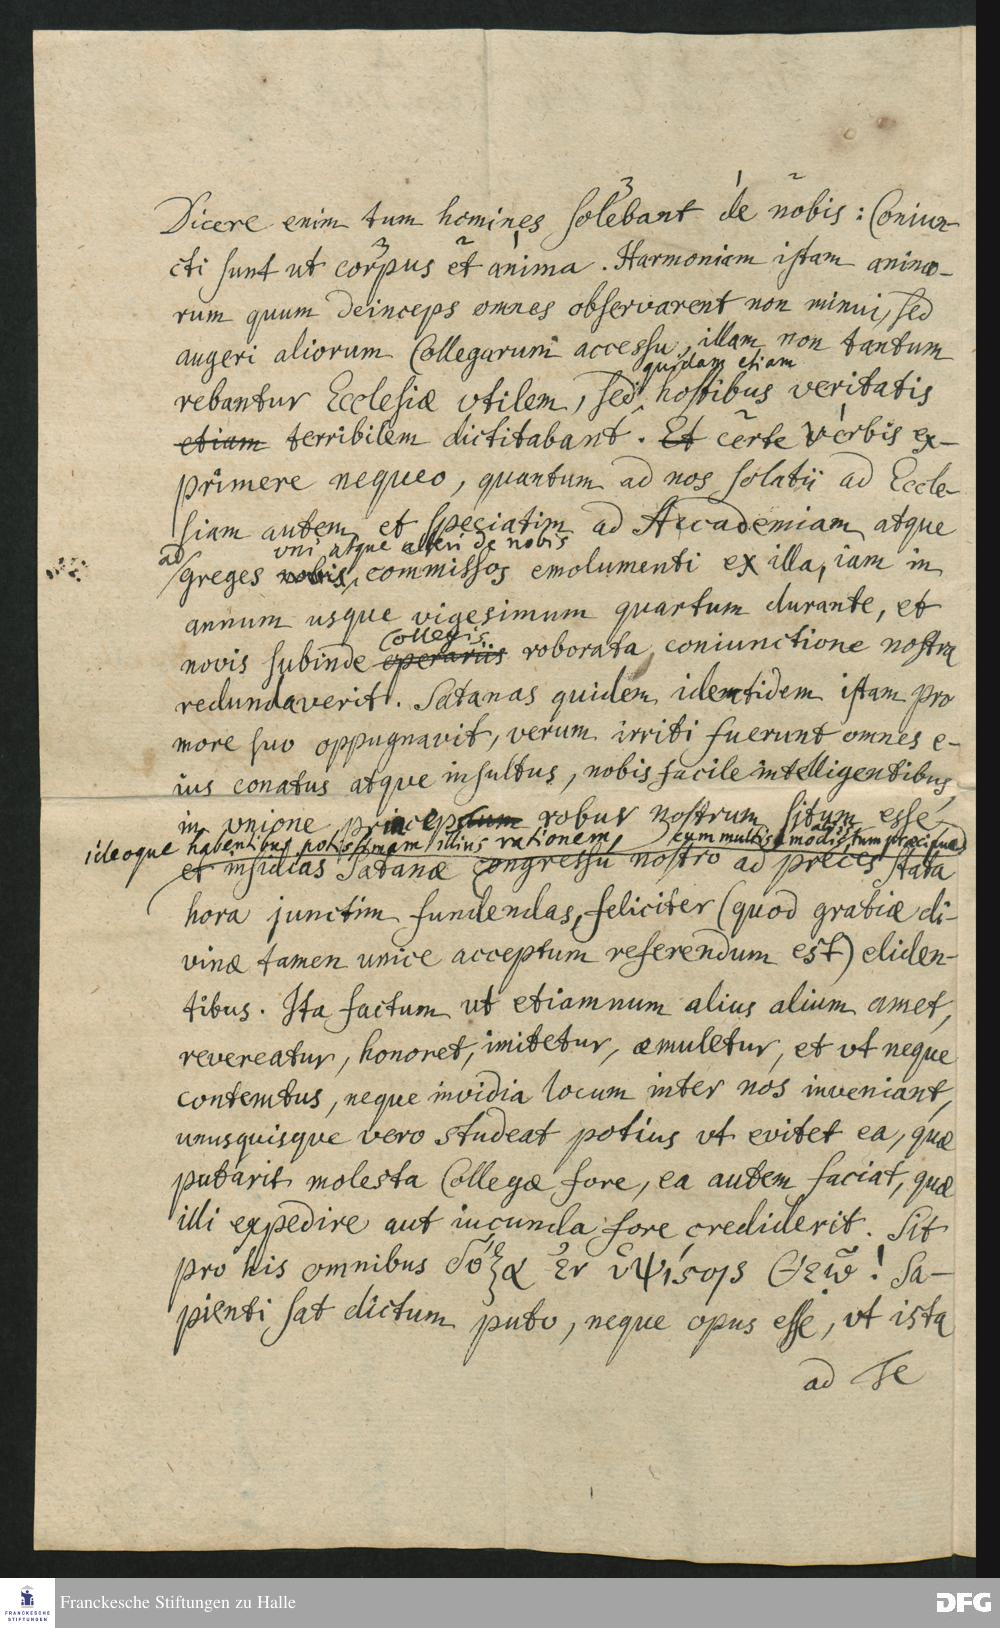 Dicere enim tum homines solebant de nobis: Coniun-
3 1 2
cti sunt ut corpus et anima. Harmoniam istam animo-
3 2 1
rum quum deinceps omnes observarent non minui, sed
augeri aliorum Collegarum accessu, illam non tantum
quidam etiam
rebantur Ecclesiæ utilem, sed hostibus veritatis
etiam terribilem dictitabant. Et certe verbis ex-
2 1
primere nequeo, quantum ad nos solatii ad Eccle-
siam autem et speciatim ad Academiam atque
ad uni, atque alteri de nobis
greges nobis, commissos emolumenti ex illa, iam in
annum usque vigesimum quartum durante, et
Collegis
novis subinde operariis roborata, coniunctione nostra
redundaverit. Satanas quidem identidem istam pro
more suo oppugnavit, verum irriti fuerunt omnes e-
ius conatus atque insultus, nobis facile intelligentibus,
in unione princeps robur nostrum situm esse,
ideoque habentibus potissimam illius rationem, cum multis modis, tum præcipue
et insidias Satanæ congressu nostro ad preces stata
hora junctim fundendas, feliciter (quod gratiæ di-
vinæ tamen unice acceptum referendum est) eliden-
tibus. Ita factum ut etiamnum alius alium amet,
revereatur, honoret, imitetur, æmuletur, et ut neque
contemtus, neque invidia locum inter nos inveniant,
unusquisque vero studeat potius ut evitet ea, quæ
putarit molesta Collegæ fore, ea autem faciat, quæ
illi expedire aut iucunda fore crediderit. Sit
pro his omnibus δόξα ἐν ὑψίστοις Θεῷ! Sa-
pienti sat dictum puto, neque opus esse, ut ista
ad Te
FRANCKESCHE STIFTUNGEN
Franckesche Stiftungen zu Halle
DFG